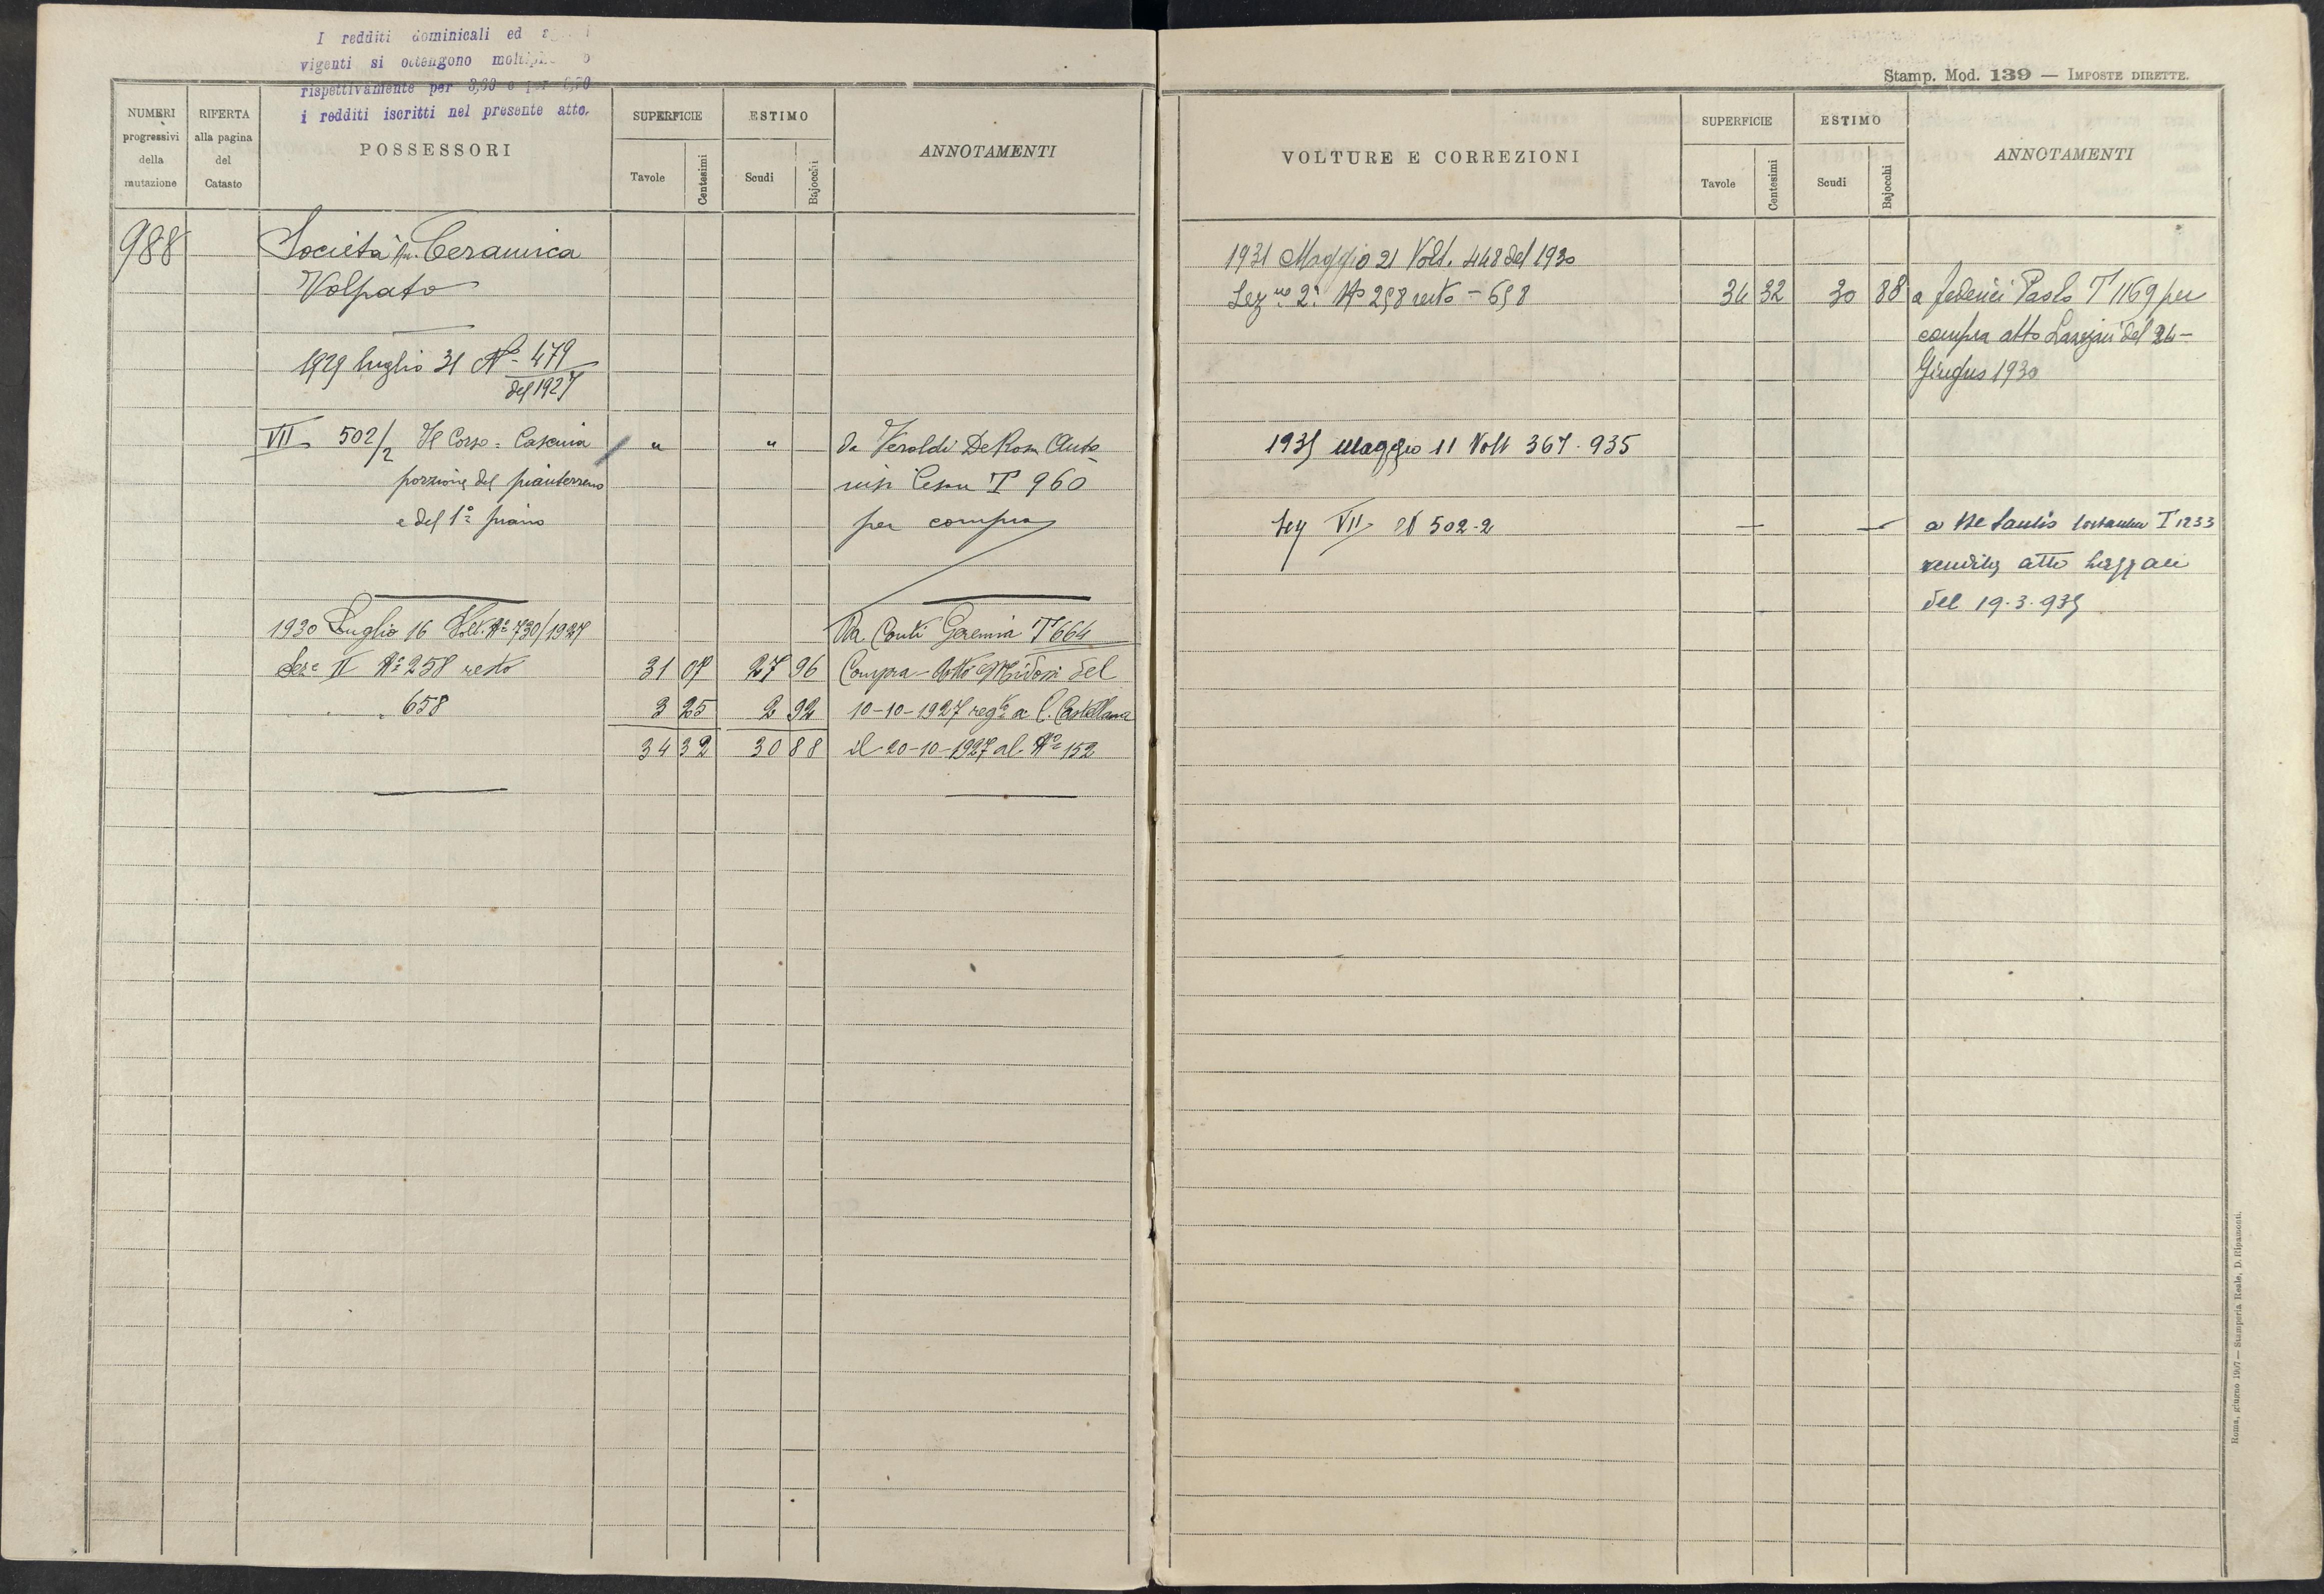 I redditi dominicali ed
vigenti si ottengono
rispettivamente per 3,60 e per
i redditi iscritti nel presente atto.
NUMERI progressivi della mutazione
RIFERTA alla pagina del Catasto
POSSESSORI
SUPERFICIE
Tavole
Centesimi
ESTIMO
Scudi
Bajocchi
ANNOTAMENTI
988
Società An. Ceramica
Volpato
1929 luglio 31 N° 479
del 1927
VII 502/2 Il Corso = Casa " " da Veroldi De Rossi Anto
porzione del pianterreno T 960
e del 1° piano per compra
1930 Luglio 16 Volt. N° 730/1927 Da Conti Geremia T 664
Sez= II N° 258 resto 31 07 27 96 Compra - Atto Midossi del
" " 658 3 25 2 92 10-10-1927 reg° a C. Castellana
34 32 30 88 il 20-10-1927 al N° 152
Stamp. Mod. 139 — IMPOSTE DIRETTE.
VOLTURE E CORREZIONI
SUPERFICIE
Tavole
Centesimi
ESTIMO
Scudi
Bajocchi
ANNOTAMENTI
1931 Maggio 21 Volt. 448 del 1930
Sez ne 2ª N° 258 resto - 658 34 32 30 88 a Federici Paolo T 1169 per
compra atto del 24-
Giugno 1930
1935 Maggio 11 Volt 367-935
Sez VII N 502-2 — — a De Santis T 1233
vendita atto
del 19-3-935
Roma, giugno 1907 — Stamperia Reale, D. Ripamonti.